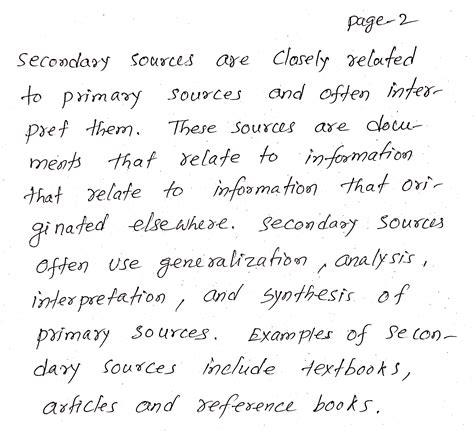 page-2
Secondary sources are closely related
to primary sources and often inter-
pret them. These sources are docu-
ments that relate to information
that relate to information that ori-
ginated elsewhere. Secondary sources
often use generalization, analysis,
interpretation, and synthesis of
primary sources. Examples of secon-
dary sources include textbooks,
articles and reference books.